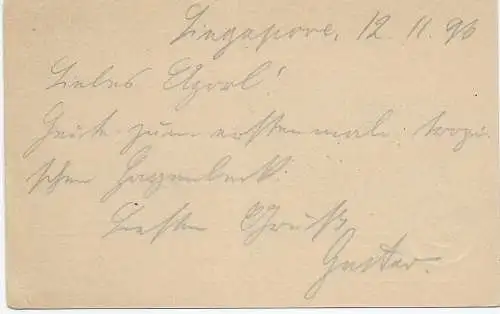 Singapore, 12. 11. 96
Liebes
Heute zum erstenmale tropi
schen
Besten Gruß
Gustav.